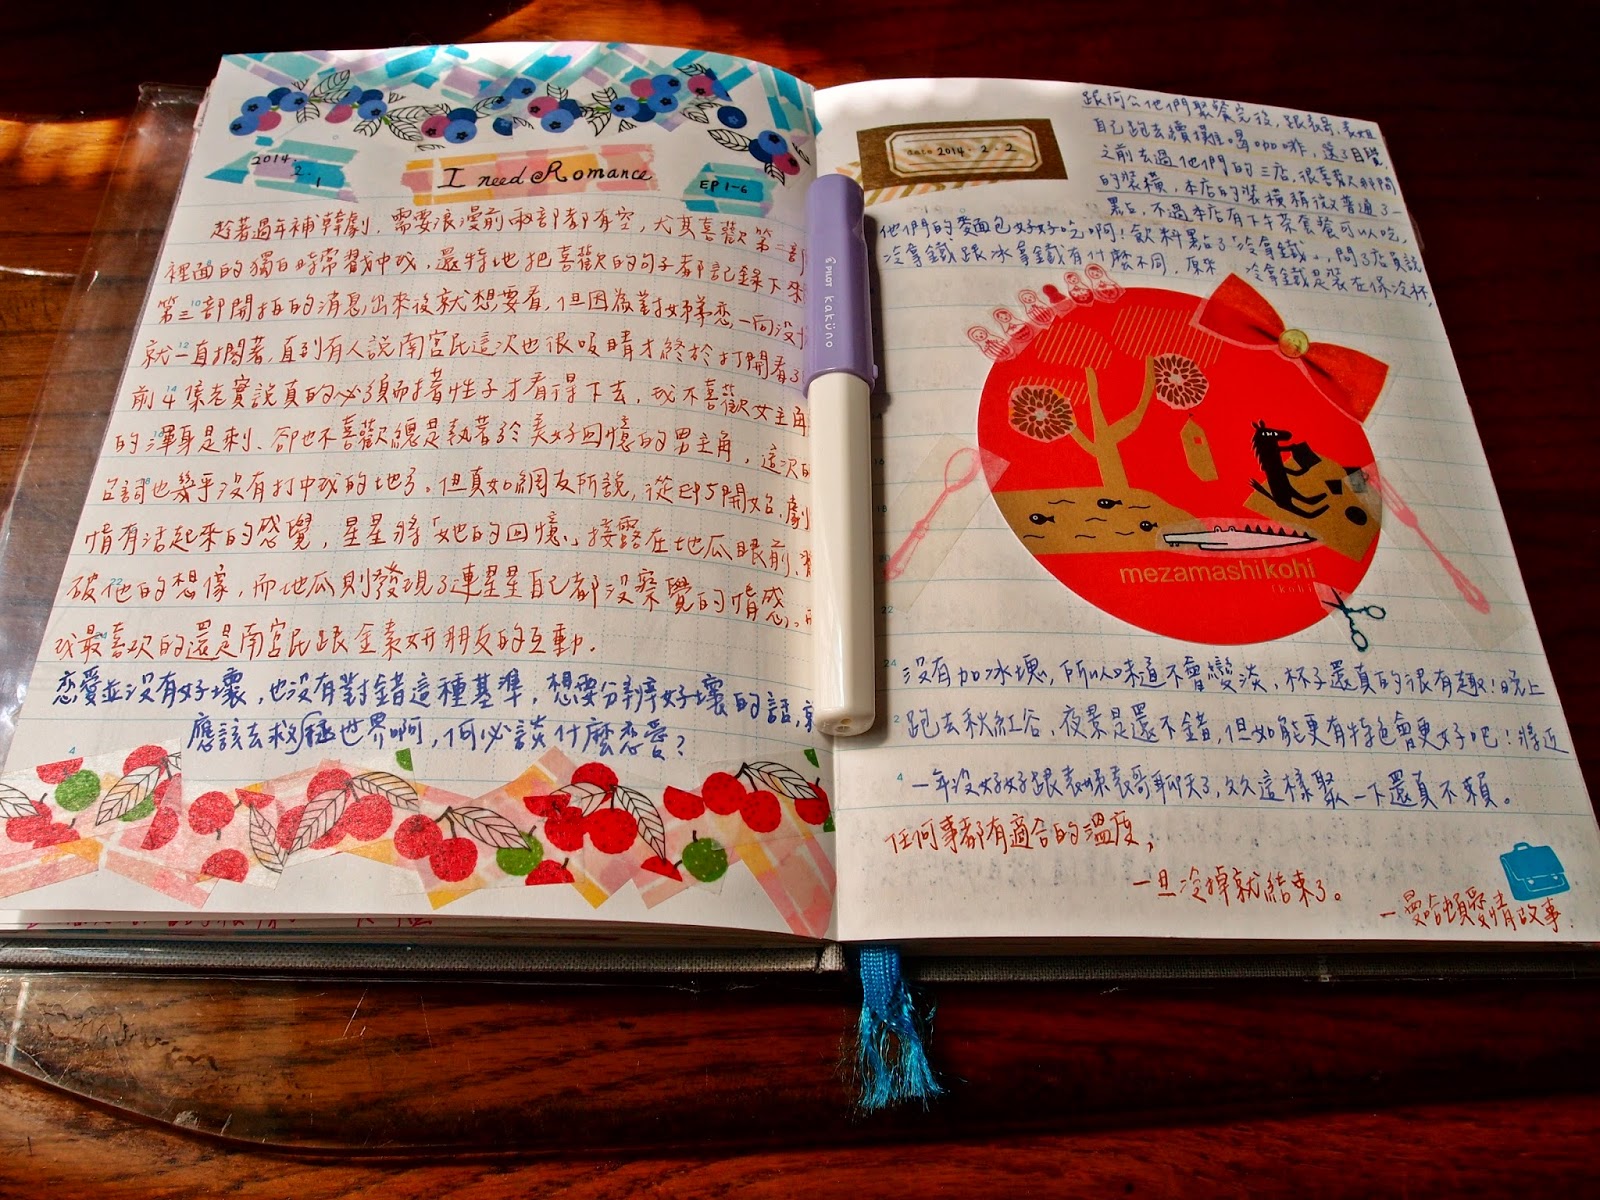 2014.
2.1
I need Romance
EP 1-6
趁著過年補韓劇，需要浪漫前兩部都有空，尤其喜歡第二部
裡面的獨白時常戳中我，還特地把喜歡的句子都記錄下來
第三部開拍的消息出來後就想要看，但因為對姊弟戀一向沒
就一直擱著，直到有人說南宮民這次也很吸睛才終於打開看了
前4集老實說真的必須耐著性子才看得下去，我不喜歡女主角
的渾身是刺、卻也不喜歡總是執著於美好回憶的男主角，這次的
台詞也幾乎沒有打中我的地方。但真如網友所說，從EP5開始，劇
情有活起來的感覺，星星將「她的回憶」接露在地瓜眼前，
破他的想像，而地瓜則發現了連星星自己都沒察覺的情感。
我最喜歡的還是南宮民跟金素妍朋友的互動。
戀愛並沒有好壞，也沒有對錯這種基準，想要分辨好壞的話，就
應該去拯救世界啊，何必談什麼戀愛？
PILOT kaküno
date 2014.2.2
跟阿公他們聚餐完後，跟表哥、表姐
自己跑去續攤喝咖啡，選了目覺，
之前去過他們的三店，很喜歡那間
的裝橫，本店的裝橫稍微普通了一
點，不過本店有下午茶套餐可以吃，
他們的麵包好好吃啊！飲料點了「冷拿鐵」，問了店員說
冷拿鐵跟冰拿鐵有什麼不同，原來 冷拿鐵是裝在保冷杯，
mezamashikohi
(kohi)
沒有加冰塊，所以味道不會變淡，杯子還真的很有趣！晚上
跑去秋紅谷，夜景是還不錯，但如能更有特色會更好吧！將近
一年沒好好跟表妹表哥聊天了，久久這樣聚一下還真不賴。
任何事都有適合的溫度，
一旦冷掉就結束了。
－曼哈頓愛情故事